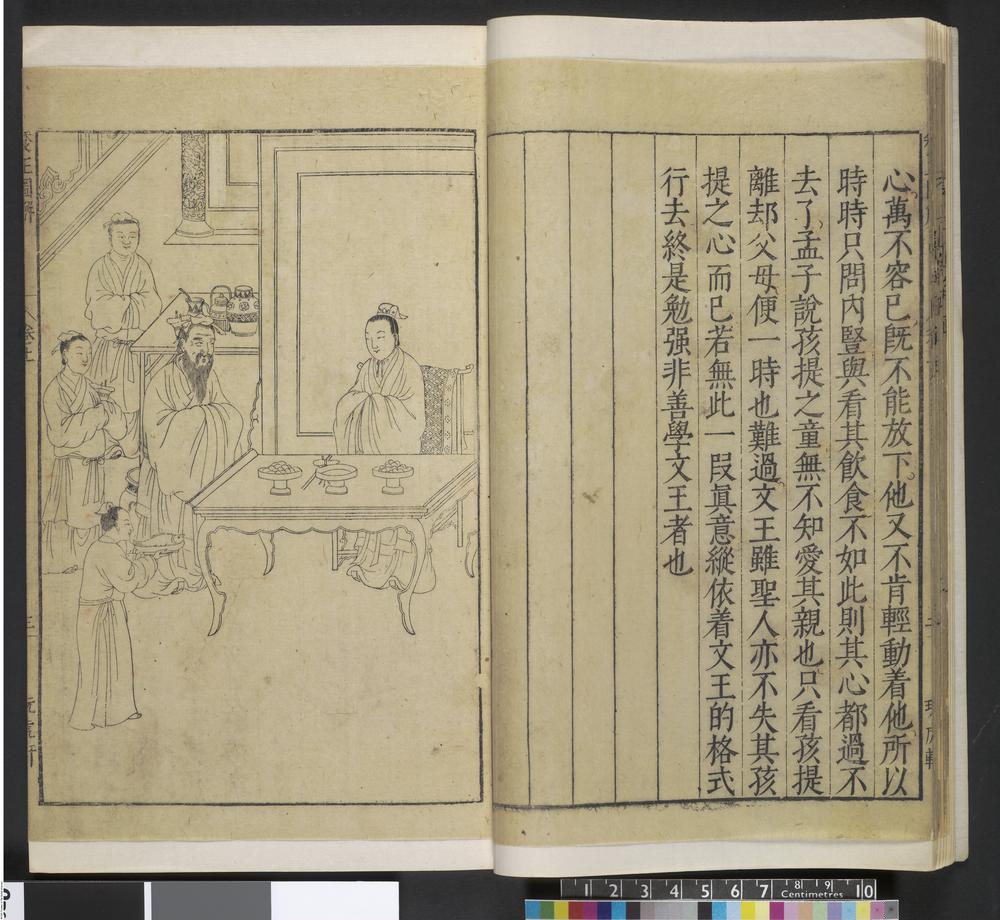 心萬不容已既不能放下他又不肯輕動着他所以
時時只問內豎與看其飲食不如此則其心都過不
去了孟子說孩提之童無不知愛其親也只看孩提
離却父母便一時也難過文王雖聖人亦不失其孩
提之心而已若無此一段眞意縱依着文王的格式
行去終是勉强非善學文王者也
養正圖解
卷上
1 2 3 4 5 6 7 8 9 10
Centimetres